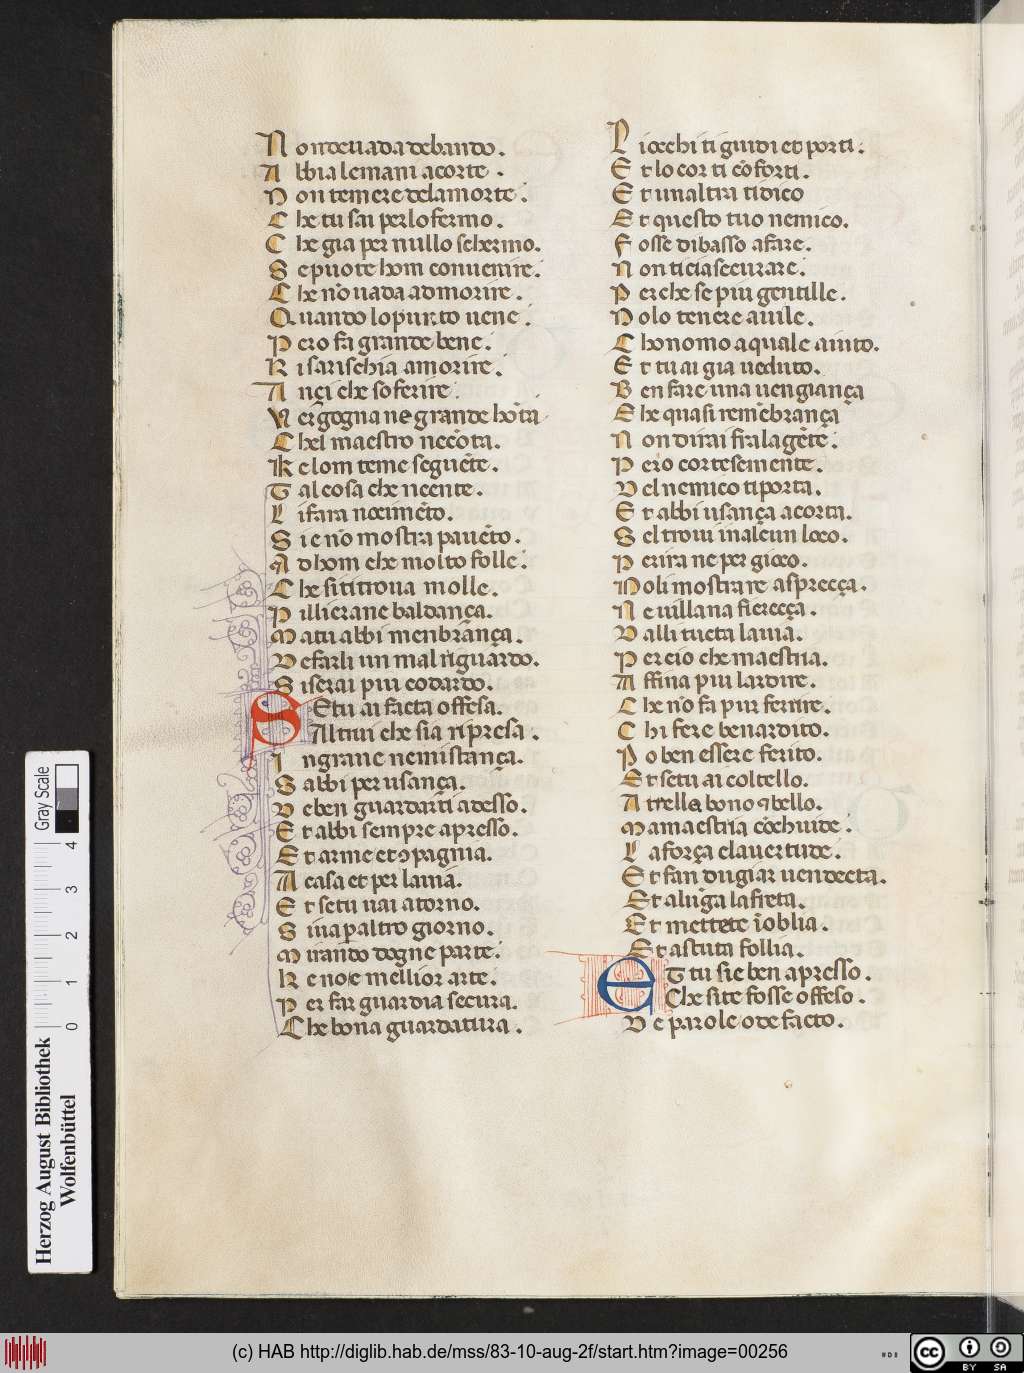 Non de uada debando.
Abbia le mani acorte.
Non temere dela morte.
Che tu sai per lo fermo.
Che gia per nullo schermo.
Se puote hom conuenire.
Che nō uada ad morire.
Quando lo punto uene.
Pero fa grande bene.
Ki sarischia a morire.
Ançi che soferire.
Vergogna ne grande hōta
Chel maestro necōta.
Ke lom teme seguēte.
Tal cosa che neente.
Li fara nocimēto.
Si e nō mostra pauēto.
Ad hom che molto folle.
Che si ti troua molle.
Pillierane baldança.
Ma tu abbi menbrança.
De farli un mal riguardo.
Siserai piu codardo.
Setu ai facta offesa.
Altrui che sia ripresa.
Ingrane nemistança.
Sabbi per usança.
De ben guardarti adesso.
Et abbi sempre apresso.
Et arme et ꝯpagnia.
A casa et per la uia.
Et setu uai atorno.
Si ua p altro giorno.
Mirando dogne parte.
Ke noie mellior arte.
Per far guardia secura.
Che bona guardatura.
Liocchi ti guidi et porti.
Et lo cor ti cōforti.
Et unaltra ti dico
Et questo tuo nemico.
Fosse di basso afare.
Non ti ci asecurare.
Perche se piu gentille.
Nolo tenere a uile.
Chonomo a quale aiuto.
Et tu ai gia ueduto.
Ben fare una uengiança
Che quasi remēbrança
Non dirai fra la gēte.
Pero cortesemente.
Del nemico ti porta.
Et abbi usança acorta.
Sel troui in alcun loco.
Perira ne per gioco.
Noli mostrare asprecça.
Ne uillana fierecça.
Dalli tucta la uia.
Percio che maestria.
Affina piu lardire.
Che nō fa pur ferire.
Chi fere ben ardito.
Po ben essere ferito.
Et setu ai coltello.
Atrella bono ⁊ bello.
Ma maestria cōchiude.
La força e la uertude.
Et fan dugiar uendecta.
Et alūga la freta.
Et mettete ī oblia.
Et astuta follia.
Et tu sie ben apresso.
Che si te fosse offeso.
De parole o de facto.
Herzog August Bibliothek
Wolfenbüttel
Gray Scale
0 1 2 3 4
(c) HAB http://diglib.hab.de/mss/83-10-aug-2f/start.htm?image=00256
cc BY SA